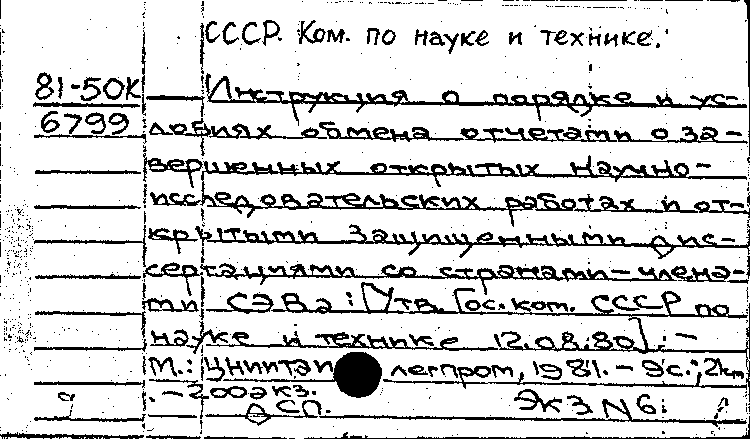 СССР. Ком. по науке и технике.
81-50К Инструкция о порядке и ус-
6799 ловиях обмена отчетами о за-
вершенных открытых научно-
исследовательских работах и от-
крытыми защищенными дис-
сертациями со странами-члена-
ми СЭВа: [Утв. Гос. ком. СССР по
науке и технике 12.08.80]. -
М.: ЦНИИТЭИлегпром, 1981. - 9с.;
. - 200экз.
ДСП. Экз N6.